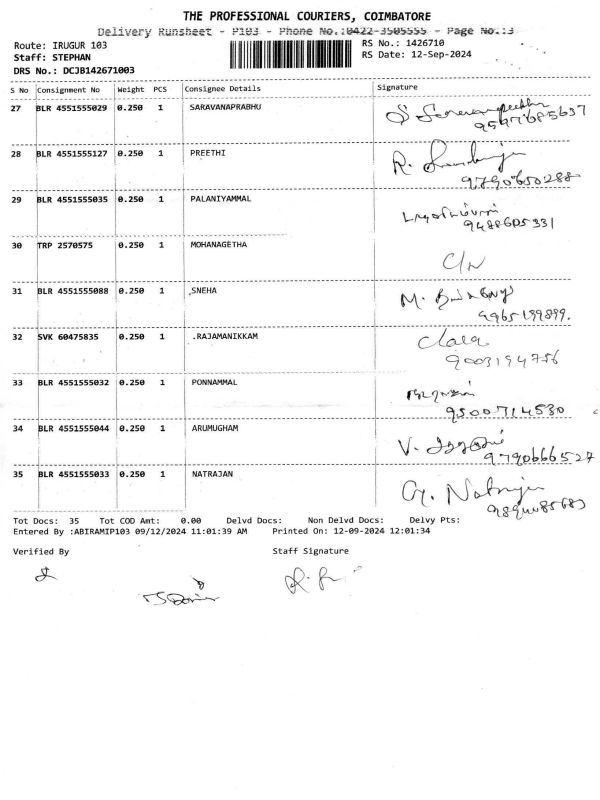 THE PROFESSIONAL COURIERS, COIMBATORE
Delivery Runsheet - P103 - Phone No.:0422-3505555 - Page No.:3
Route: IRUGUR 103
RS No.: 1426710
Staff: STEPHAN
RS Date: 12-Sep-2024
DRS No.: DCJB142671003
S No Consignment No Weight PCS Consignee Details Signature
27 BLR 4551555029 0.250 1 SARAVANAPRABHU
9597685637
28 BLR 4551555127 0.250 1 PREETHI
9790650288
29 BLR 4551555035 0.250 1 PALANIYAMMAL
9488605331
30 TRP 2570575 0.250 1 MOHANAGETHA
C/N
31 BLR 4551555088 0.250 1 ,SNEHA
9965199899.
32 SVK 60475835 0.250 1 .RAJAMANIKKAM
9003194756
33 BLR 4551555032 0.250 1 PONNAMMAL
9500714530
34 BLR 4551555044 0.250 1 ARUMUGHAM
9790666527
35 BLR 4551555033 0.250 1 NATRAJAN
Tot Docs: 35 Tot COD Amt: 0.00 Delvd Docs: Non Delvd Docs: Delvy Pts:
Entered By :ABIRAMIP103 09/12/2024 11:01:39 AM Printed On: 12-09-2024 12:01:34
Verified By Staff Signature